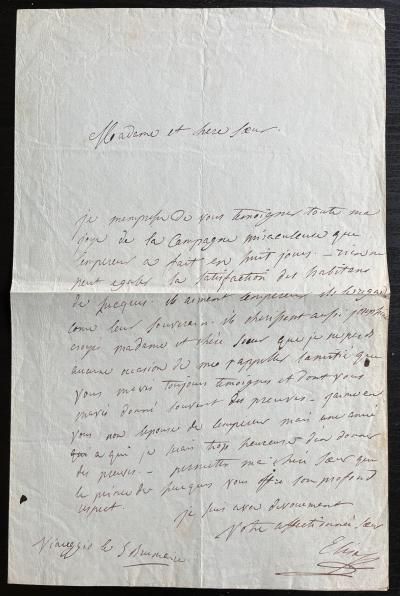 Madame et chere sœur.
je m'empresse de vous temoigner toute ma
joye de la Campagne miraculeuse que
l'empereur a fait en huit jours – rien ne
peut egaler la satisfaction des habitans
de Lucques. ils aiment l'empereur ils
come leur souverain. ils cherissent aussi
croyez madame et chére sœur que je ne perd
aucune occasion de me rappeller l'amitié que
vous m'avez toujours temoignés et dont vous
m'avez donné souvent des preuves – j'aime en
vous non l'epouse de l'empereur mais une amie
a qui je serais trop heureuse d'en donner
des preuves – permettez ma chére sœur que
le prince de Lucques vous offre son profond
respect.
je suis avec devouement
Votre affectionnée sœur
Elisa
Viareggio le 5 Brumaire